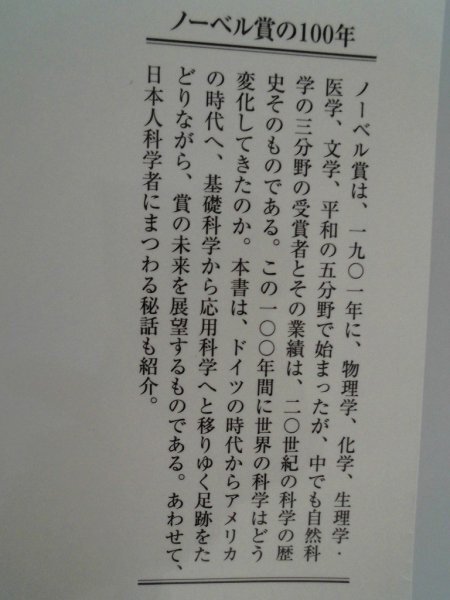 ノーベル賞の100年
ノーベル賞は、一九〇一年に、物理学、化学、生理学・
医学、文学、平和の五分野で始まったが、中でも自然科
学の三分野の受賞者とその業績は、二〇世紀の科学の歴
史そのものである。この一〇〇年間に世界の科学はどう
変化してきたのか。本書は、ドイツの時代からアメリカ
の時代へ、基礎科学から応用科学へと移りゆく足跡をた
どりながら、賞の未来を展望するものである。あわせて、
日本人科学者にまつわる秘話も紹介。